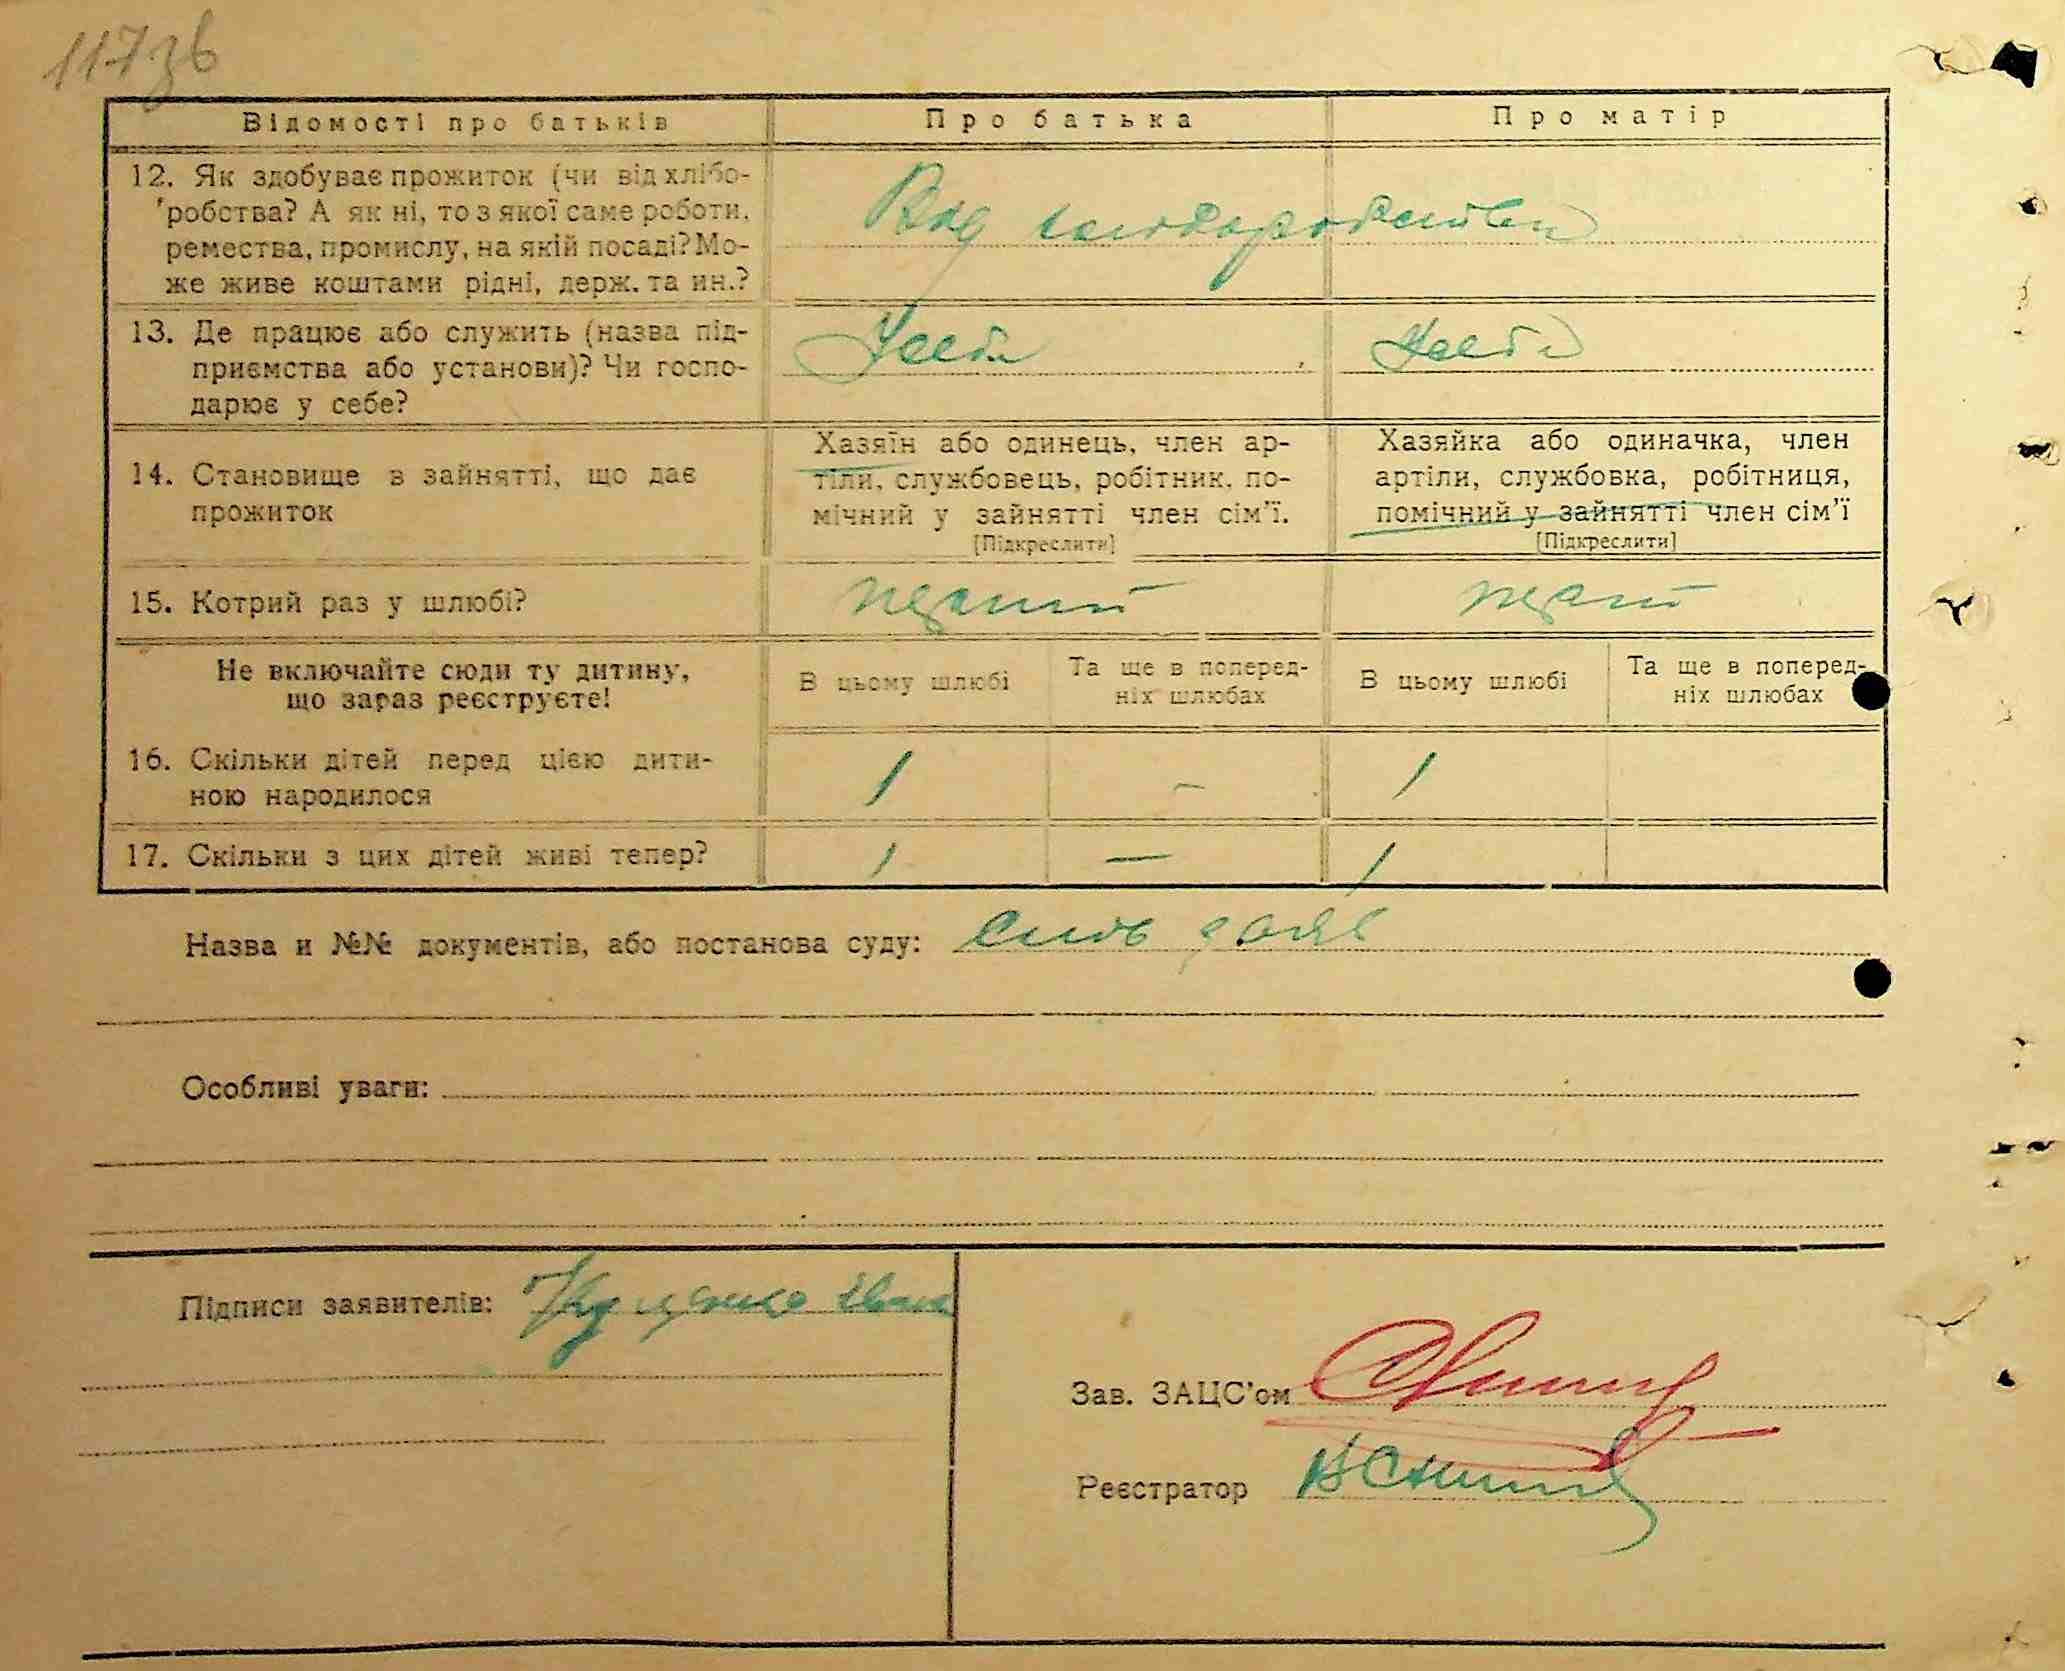 117зв
Відомості про батьків Про батька Про матір
12. Як здобуває прожиток (чи від хлібо-
робства? А як ні, то з якої саме роботи,
ремества, промислу, на якій посаді? Мо-
же живе коштами рідні, держ. та ин.?
Від
13. Де працює або служить (назва під-
приємства або установи)? Чи госпо-
дарює у себе?
У себе У себе
14. Становище в зайнятті, що дає
прожиток
Хазяїн або одинець, член ар-
тіли, службовець, робітник, по-
мічний у зайнятті член сім'ї.
[Підкреслити]
Хазяйка або одиначка, член
артіли, службовка, робітниця,
помічний у зайнятті член сім'ї
[Підкреслити]
15. Котрий раз у шлюбі?
перший перший
Не включайте сюди ту дитину,
що зараз реєструєте!
В цьому шлюбі
Та ще в поперед-
ніх шлюбах
В цьому шлюбі
Та ще в поперед-
ніх шлюбах
16. Скільки дітей перед цією дити-
ною народилося
1 - 1
17. Скільки з цих дітей живі тепер?
1 — 1
Назва и №№ документів, або постанова суду:
Особливі уваги:
Підписи заявителів: Іван
Зав. ЗАЦС'ом
Реєстратор